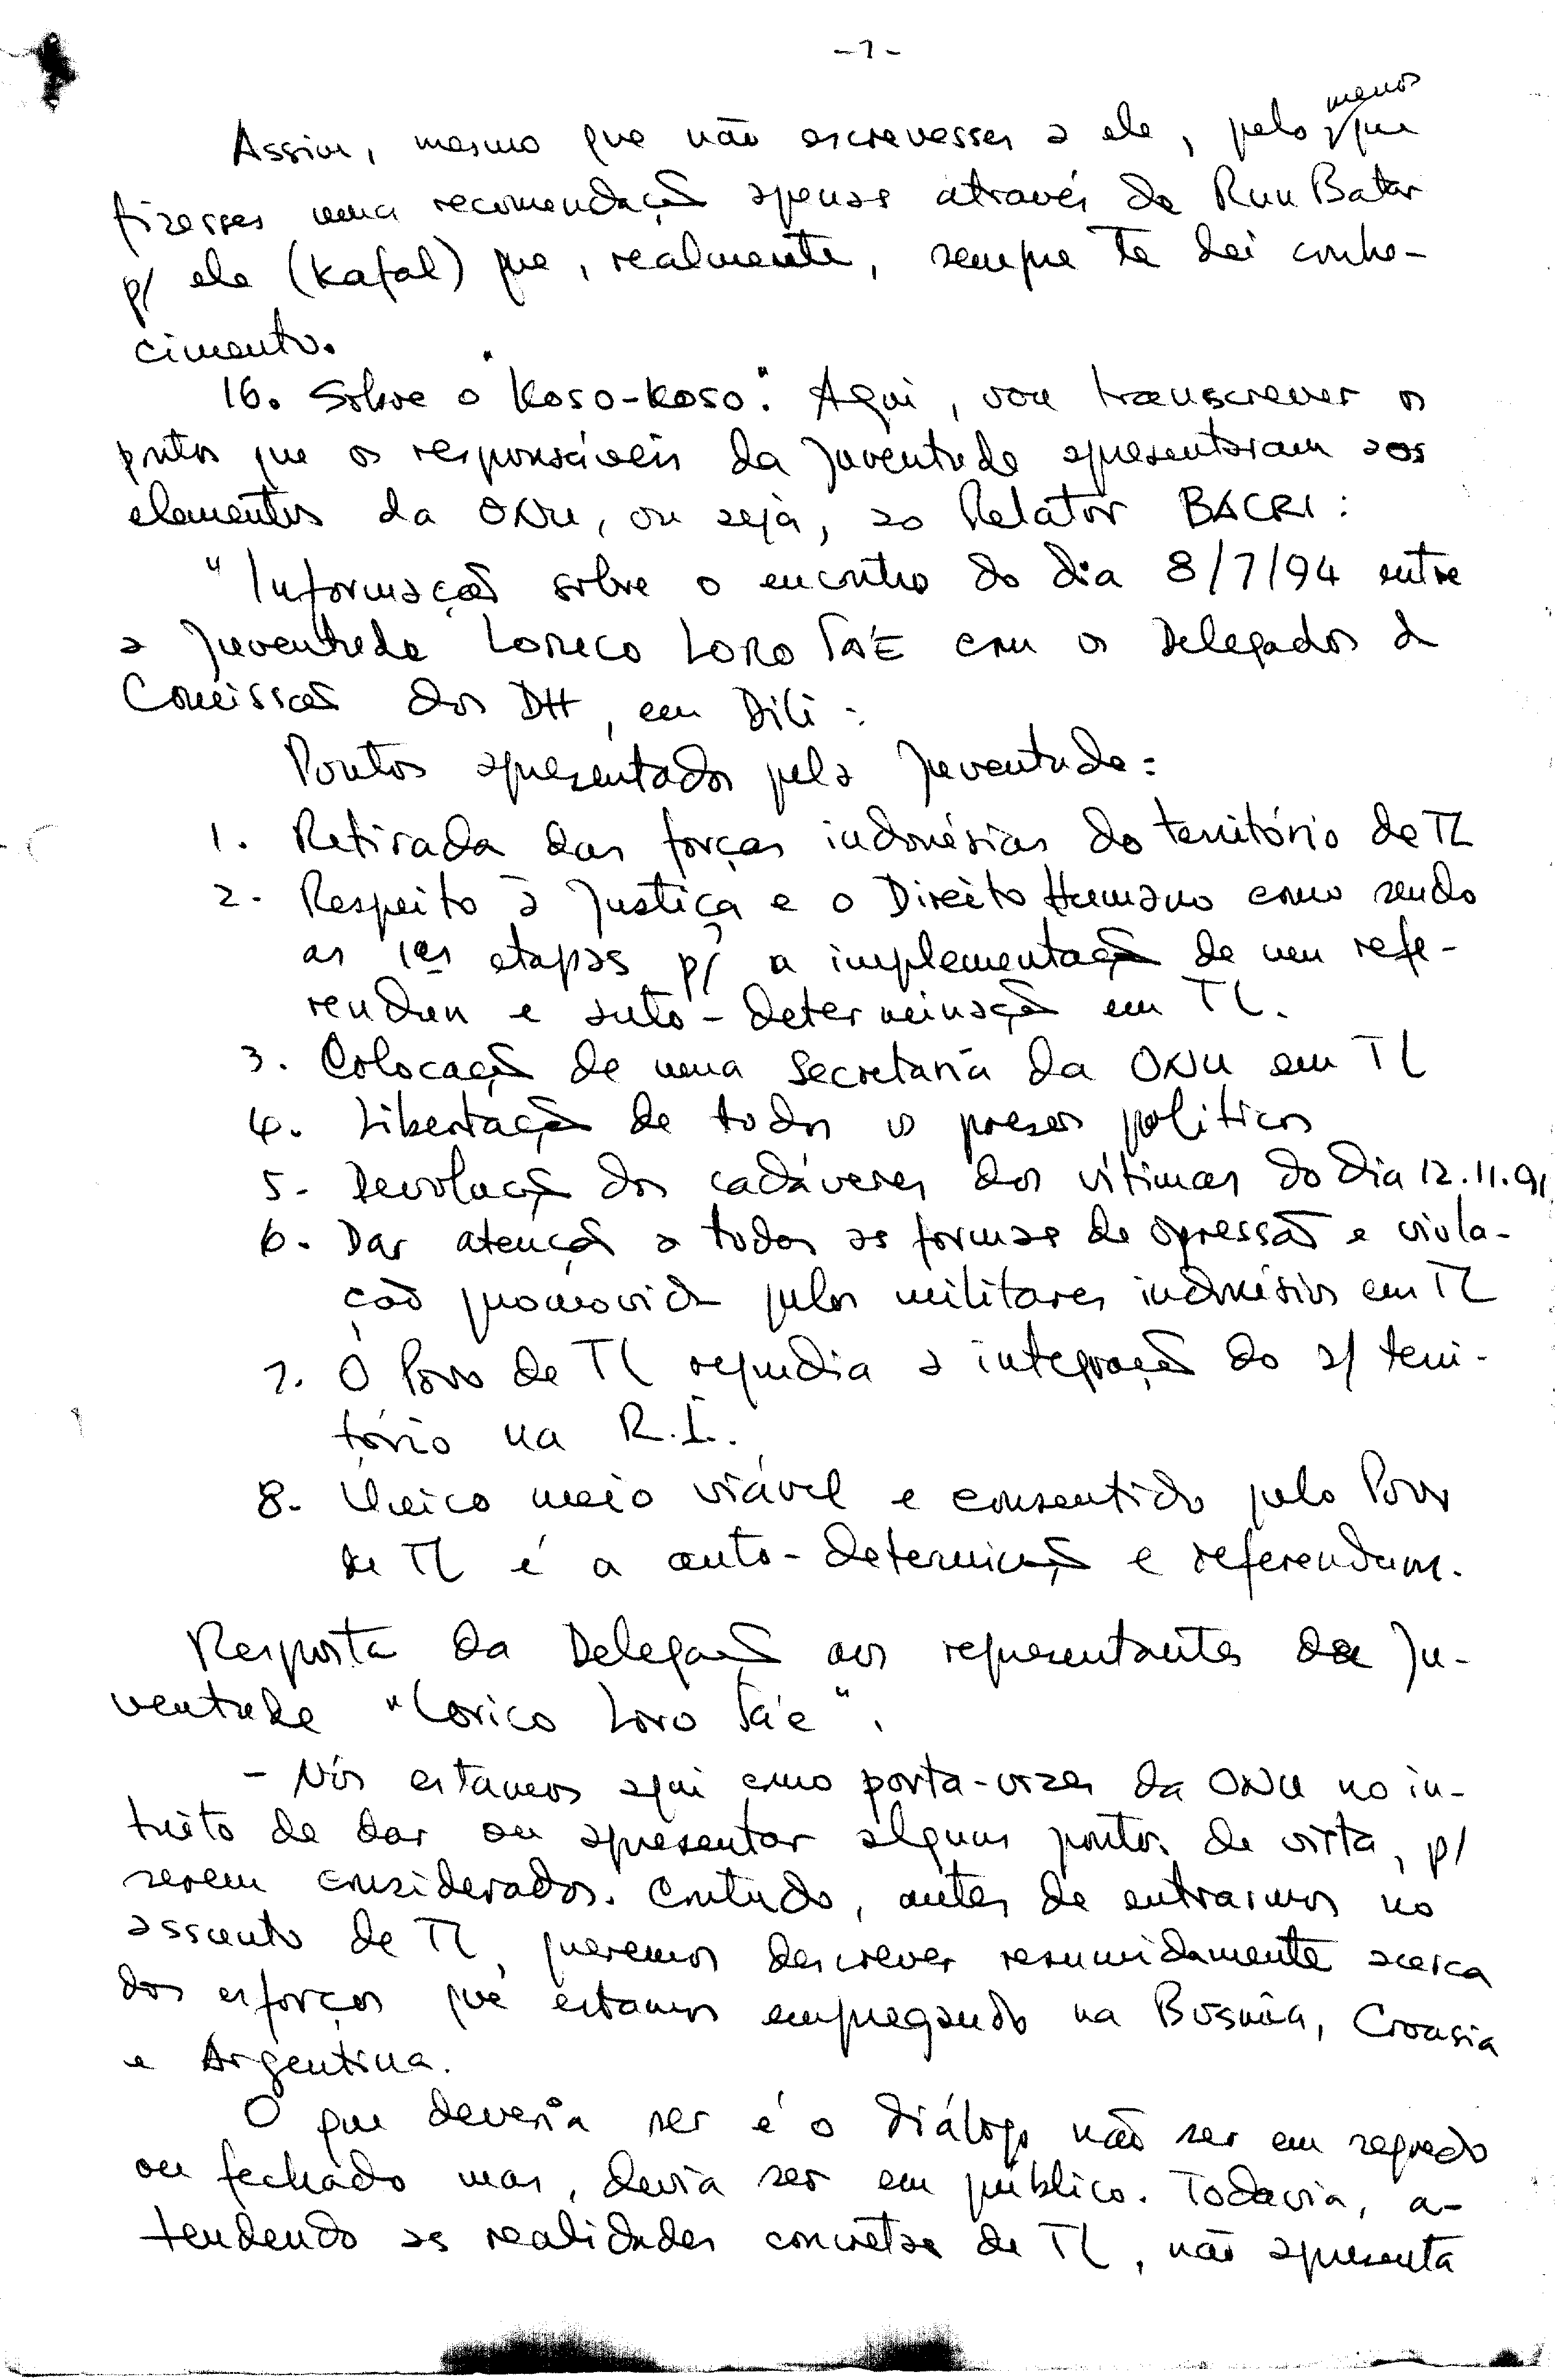 -7-
Assim, mesmo que não escrevesses a ele, pelo menos que
fizesses uma recomendação apenas através de Ruu Batar
p/ ele (Kafal) que, realmente, sempre te dei conhe-
cimento.
16. Sobre o "Koso-Koso". Aqui, vou transcrever os
pntos que os responsáveis da Juventude apresentaram aos
elementos da ONU, ou seja, ao Relator BACRI:
"Informação sobre o encontro do dia 8/7/94 entre
a Juventude LORICO LORO SA'E com os Delegados da
Comissão dos DH, em Dili:
Pontos apresentados pela Juventude:
1. Retirada das forças indonésias do território de TL
2. Respeito à Justiça e o Direito Humano como sendo
as 1as etapas p/ a implementação de um refe-
rendum e auto-determinação em TL.
3. Colocação de uma Secretaria da ONU em TL
4. Libertação de todos os presos políticos
5. Devolução dos cadáveres dos vítimas do dia 12.11.91
6. Dar atenção a todas as formas de opressão e viola-
ção promovida pelos militares indonésios em TL
7. O Povo de TL repudia a integração do s/ terri-
tório na R.I.
8. Único meio viável e consentido pelo Povo
de TL é a auto-determinação e referendum.
Resposta da Delegação aos representantes da Ju-
ventude "Lorico Loro Sa'e".
- Nós estamos aqui como porta-vozes da ONU no in-
tuito de dar ou apresentar alguns pontos de vista, p/
serem considerados. Contudo, antes de entrarmos no
assunto de TL, queremos descrever resumidamente acerca
dos esforços que estamos empregando na Bósnia, Croasia
e Argentina.
O que deveria ser é o diálogo não ser em segredo
ou fechado mas, devia ser em público. Todavia, a-
tendendo as realidades concretas de TL, não apresenta